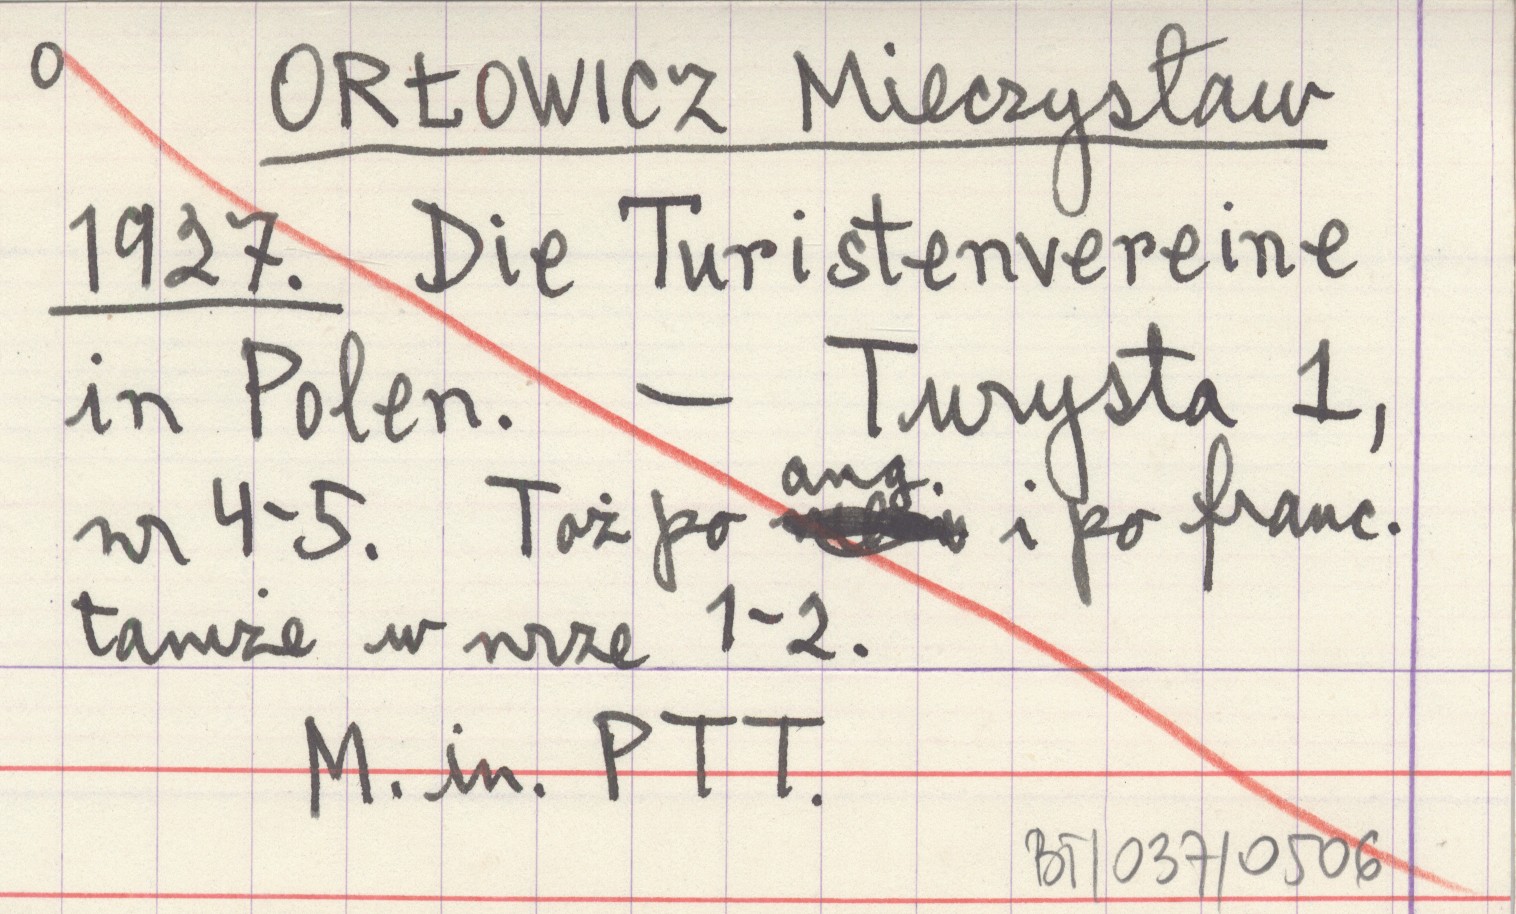 O ORŁOWICZ Mieczysław
1927. Die Turistenvereine
in Polen. — Turysta 1,
ang.
nr 4-5. Toż po i po franc.
tamże w nrze 1-2.
M. in. PTT.
BT/037/0506